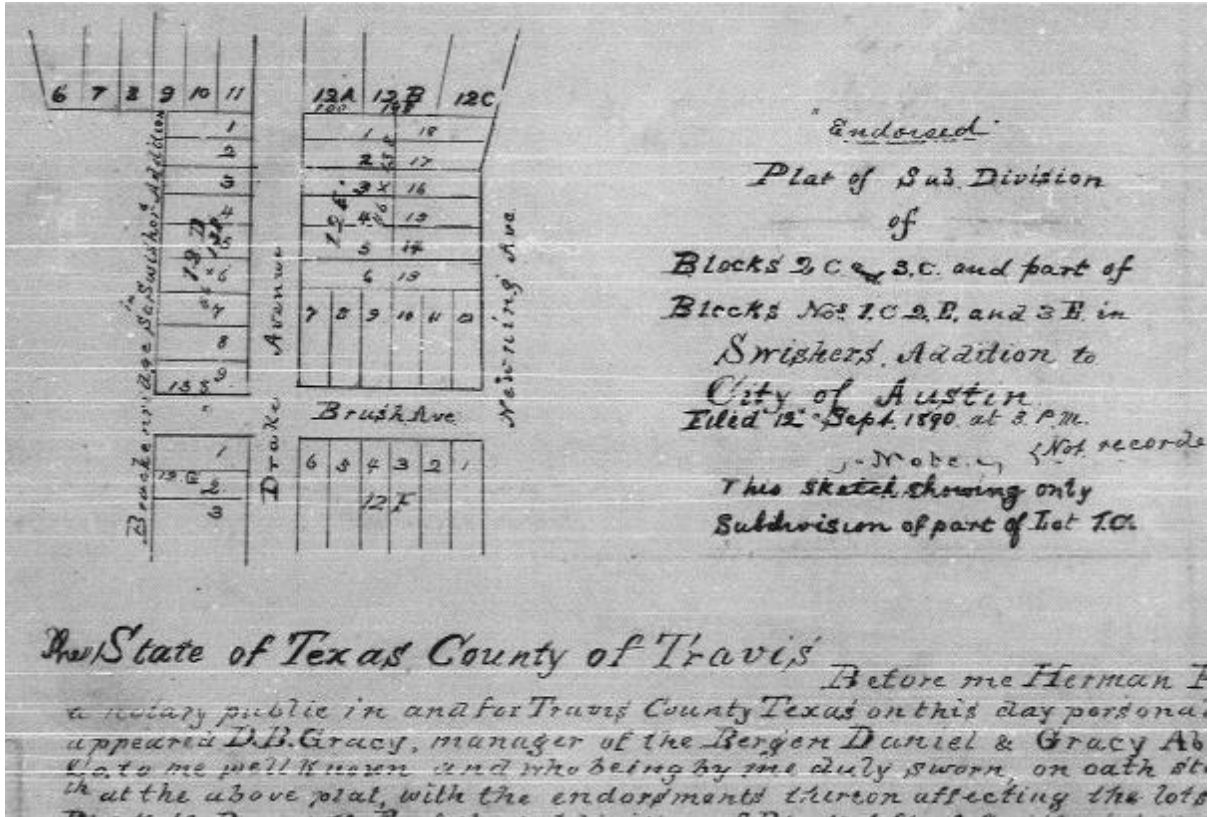 6 7 8 9 10 11
12A 12B 12C
100
1 18
2 17
3 16
4 15
5 14
6 13
7 8 9 10 11 12
12E
1
2
3
4
5
6
7
8
9
12D
155
Brackenridge in Swishers Addition
Drake Avenue
Newning Ave
Brush Ave
1
12G 2
3
6 5 4 3 2 1
12F
"Endorsed"
Plat of Sub. Division
of
Blocks 2 C & 3.C. and part of
Blocks Nos. 1.C 2.E. and 3 E in
Swishers Addition to
City of Austin
Filed 12" Sept. 1890 at 3 P.M.
{Not recorde
Note.
This sketch showing only
Subdivision of part of Lot 1.C.
The State of Texas County of Travis
Before me Herman
a notary public in and for Travis County Texas on this day persona
appeared D.B. Gracy, manager of the Bergen Daniel & Gracy Ab
Co. to me well known and who being by me duly sworn, on oath sta
th at the above plat, with the endorsments thereon affecting the lots